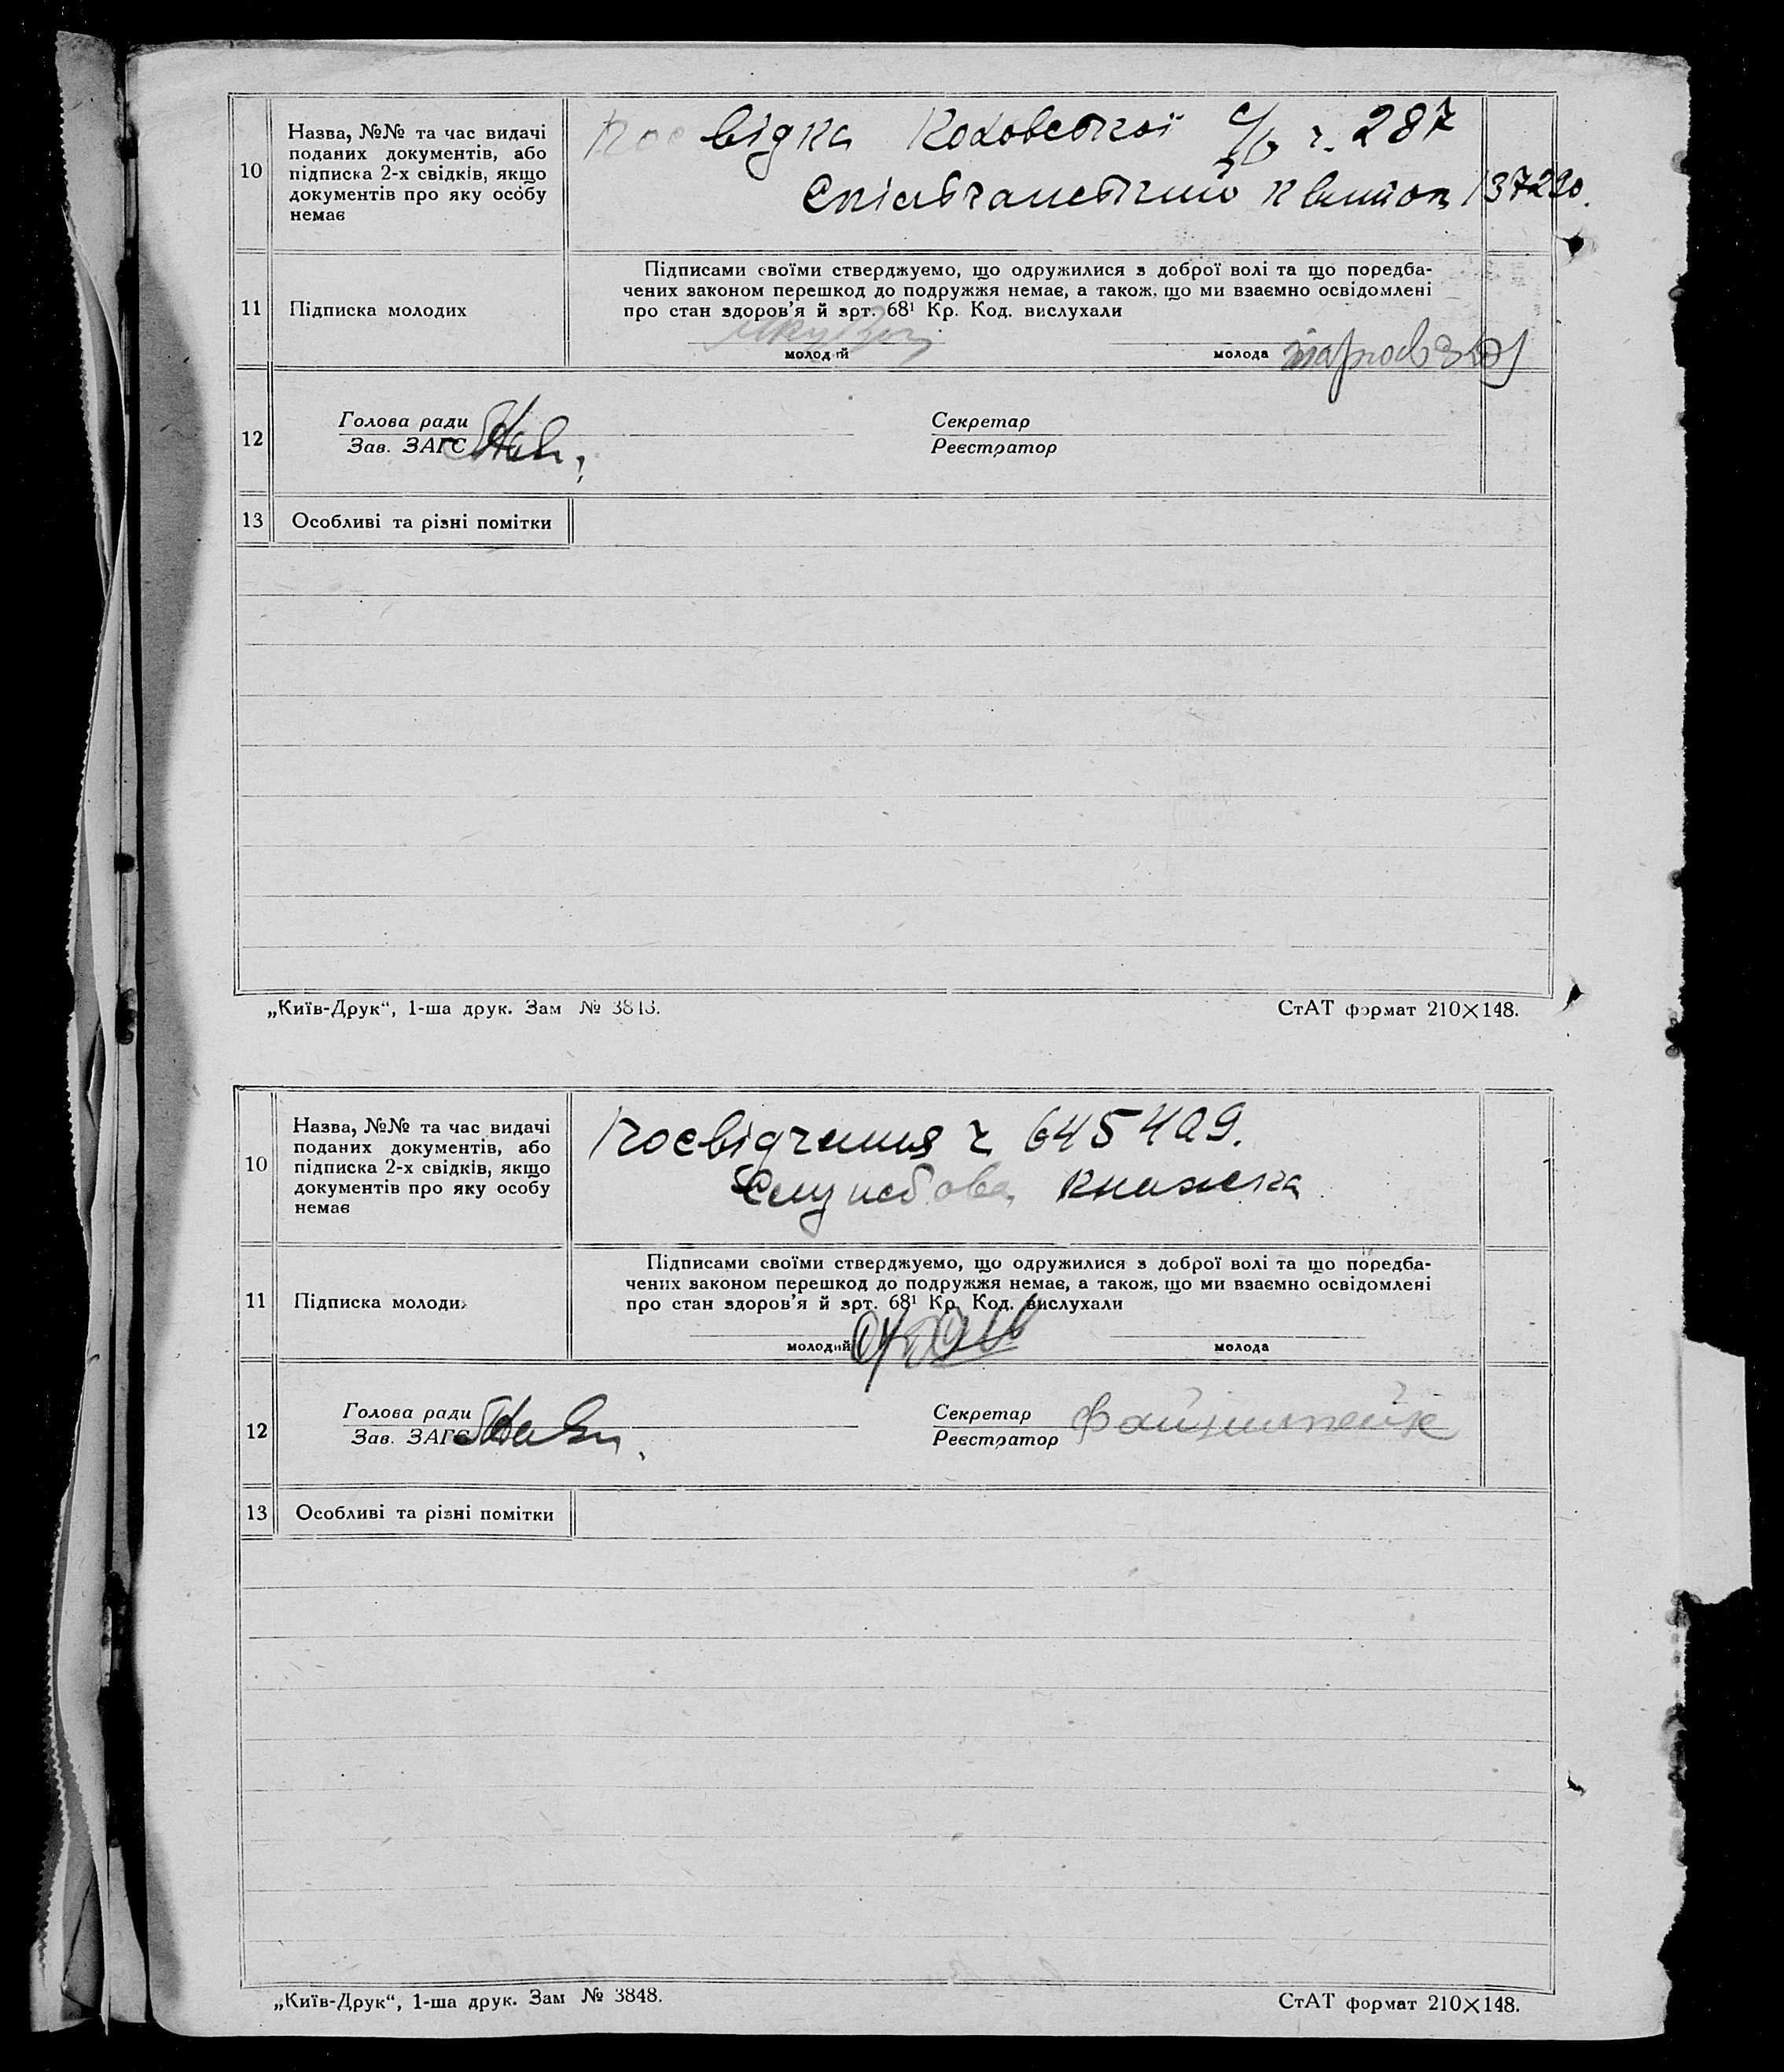 10
Назва, №№ та час видачі
поданих документів, або
підписка 2-х свідків, якщо
документів про яку особу
немає
Посвідка Коховської с/б ч. 287
Співвчанський квиток 137220.
11
Підписка молодих
Підписами своїми стверджуємо, що одружилися з доброї волі та що поредба-
чених законом перешкод до подружжя немає, а також, що ми взаємно освідомлені
про стан здоров'я й зрт. 68¹ Кр. Код. вислухали
молодий
молода
12
Голова ради
Зав. ЗАГС
Секретар
Реєстратор
13
Особливі та різні помітки
„Київ-Друк“, 1-ша друк. Зам № 3843.
СтАТ формат 210×148.
10
Назва, №№ та час видачі
поданих документів, або
підписка 2-х свідків, якщо
документів про яку особу
немає
Посвідчення ч 645409.
Службова книжка
11
Підписка молодих
Підписами своїми стверджуємо, що одружилися з доброї волі та що поредба-
чених законом перешкод до подружжя немає, а також, що ми взаємно освідомлені
про стан здоров'я й зрт. 68¹ Кр. Код. вислухали
молодий
молода
12
Голова ради
Зав. ЗАГС
Секретар
Реєстратор
13
Особливі та різні помітки
„Київ-Друк“, 1-ша друк. Зам № 3848.
СтАТ формат 210×148.